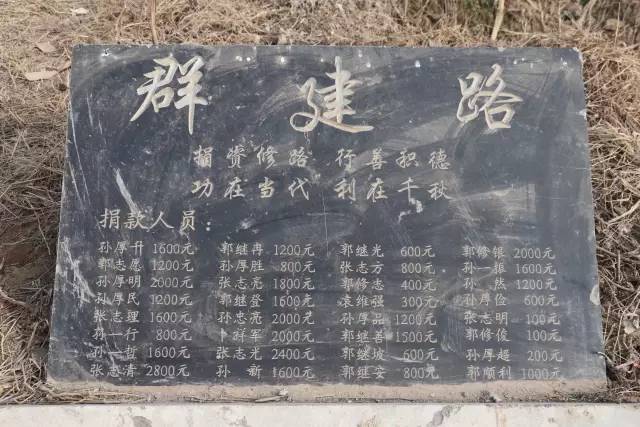 群建路
捐资修路 行善积德
功在当代 利在千秋
捐款人员：
孙厚升 1600元 郭继冉 1200元 郭继光 600元 郭修银 2000元
郭志愿 1200元 孙厚胜 800元 张志方 800元 孙一振 1600元
孙厚明 2000元 张志亮 1800元 郭修志 400元 孙然 1200元
孙厚民 1200元 郭继登 1600元 袁维强 300元 孙厚俭 600元
张志理 1600元 孙忠亮 2000元 孙厚品 1200元 张志明 100元
孙一行 800元 卜祥军 2000元 郭继善 1500元 郭修俊 100元
孙一哲 1600元 张志光 2400元 郭继坡 600元 孙厚超 200元
张志清 2800元 孙新 1600元 郭继安 800元 郭顺利 1000元